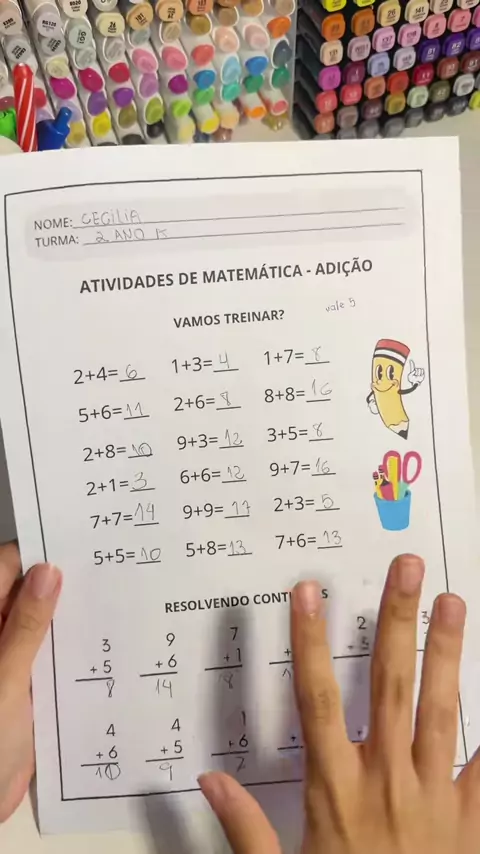 NOME: CECÍLIA
TURMA: 2 ANO B
ATIVIDADES DE MATEMÁTICA - ADIÇÃO
VAMOS TREINAR? vale 5
2+4=6 1+3=4 1+7=8
5+6=11 2+6=8 8+8=16
2+8=10 9+3=12 3+5=8
2+1=3 6+6=12 9+7=16
7+7=14 9+9=17 2+3=5
5+5=10 5+8=13 7+6=13
RESOLVENDO
3 9 7 2 3
+5 +6 +1 +
8 14 8
4 4 1
+6 +5 +6 + +
10 9 7